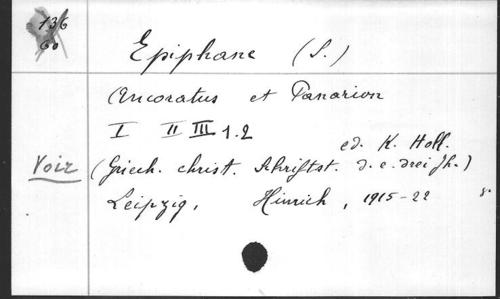 136
60
Epiphane (S.)
Ancoratus et Panarion
I II III 1.2
ed. K. Holl.
Voir (Griech. christ. Schriftst. d. e. drei Jh.)
Leipzig, Hinrich, 1915-22 8°